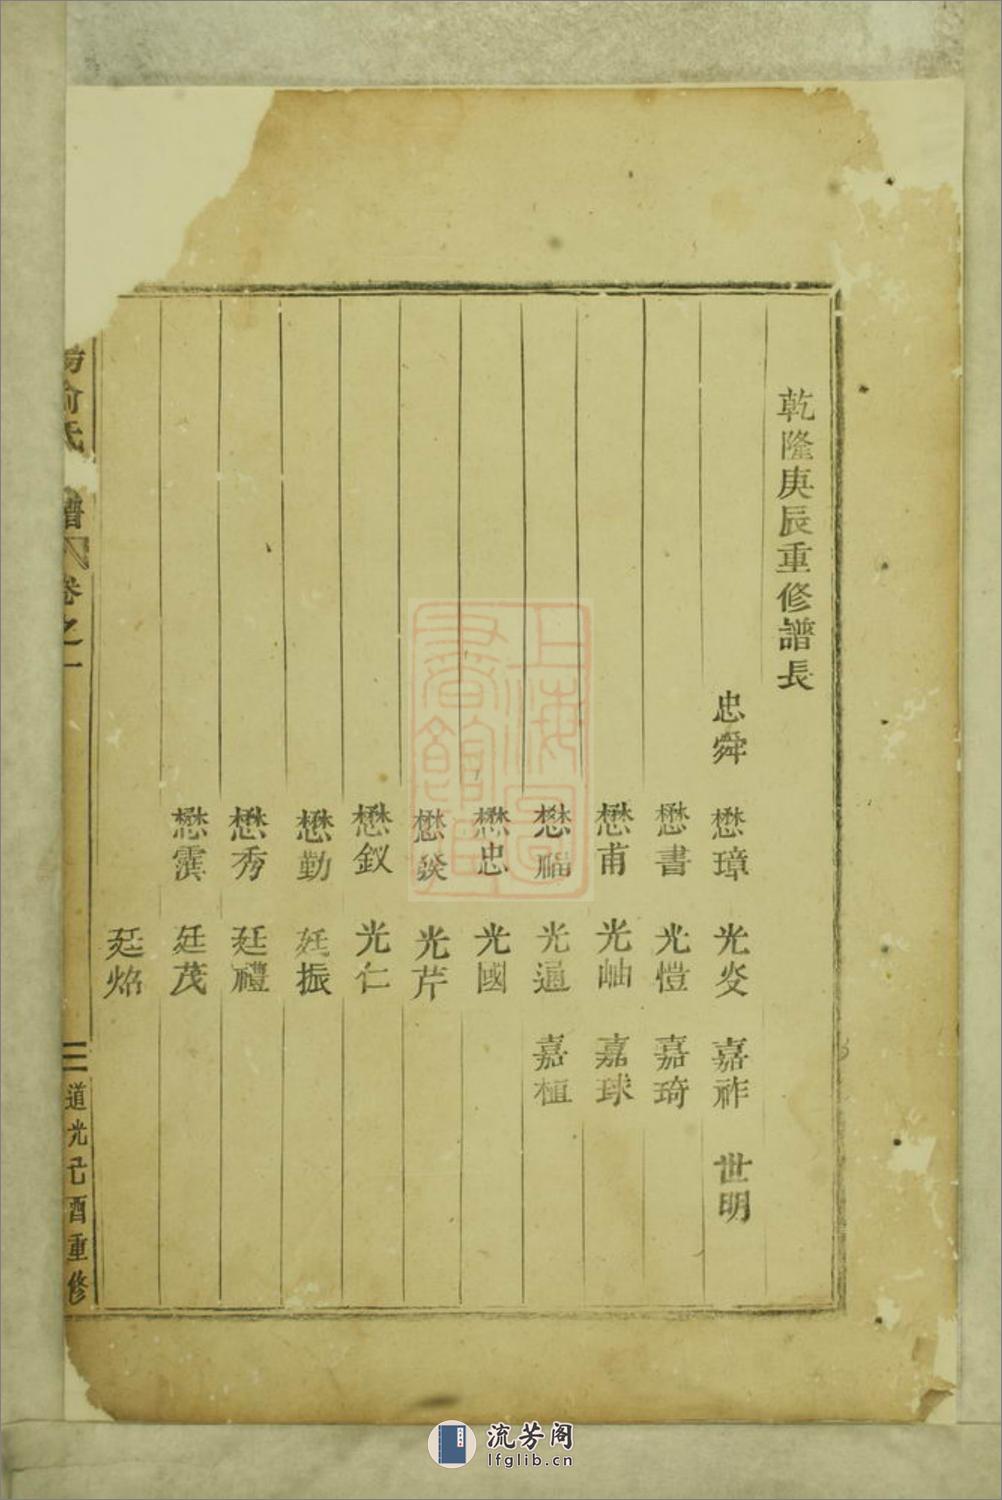 乾隆庚辰重修譜長
忠舜 懋璋 光炎 嘉祚 世明
懋書 光愷 嘉琦
懋甫 光岫 嘉球
懋福 光通 嘉植
懋忠 光國
懋燊 光芹
懋釵 光仁
懋勤 廷振
懋秀 廷禮
懋霖 廷茂
廷焰
俞氏 譜 卷之一 二 道光己酉重修
上海圖書館藏
流芳阁
lfglib.cn